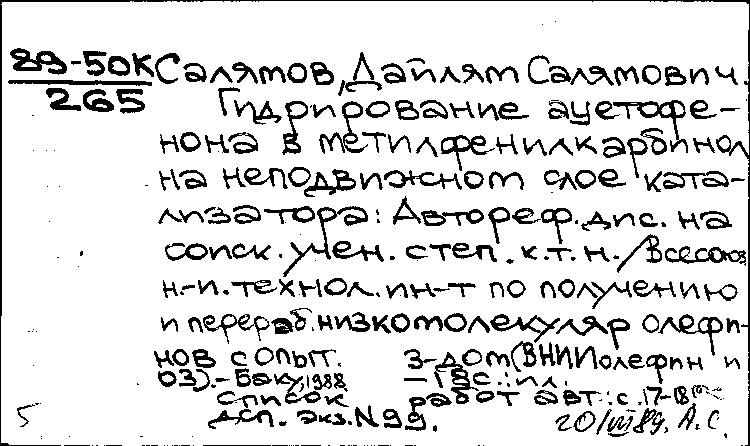 89-50К
265
Салямов, Дайлям Салямович.
Гидрирование ацетофе-
нона в метилфенилкарбинол
на неподвижном слое ката-
лизатора: Автореф. дис. на
соиск. учен. степ. к.т.н. /Всесоюз.
н.-и. технол. ин-т по получению
и перераб. низкомолекуляр олефи-
нов с опыт. з-дом (ВНИИолефин и
ОЗ).- Баку, 1988 — 18с.: ил.
Список работ авт.: с. 17-18
ДСП. Экз. N 99.
5
20/VII 89. А.С.